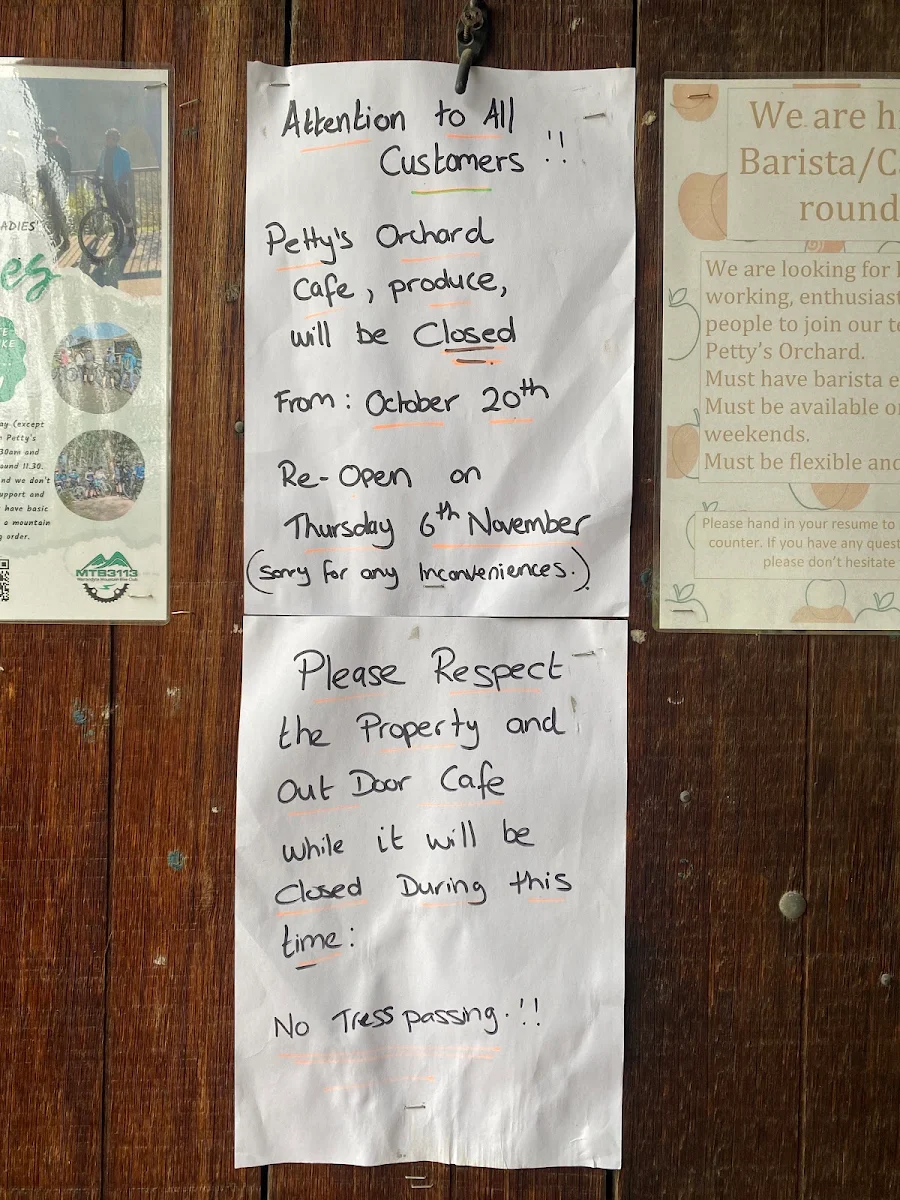 Attention to All
Customers !!
Petty's Orchard
Cafe, produce,
will be Closed
From: October 20th
Re-Open on
Thursday 6th November
(sorry for any Inconveniences.)
Please Respect
the Property and
Out Door Cafe
while it will be
Closed During this
time:
No Tresspassing.!!
ADIES'
es
ay (except
Petty's
30am and
ound 11.30.
nd we don't
upport and
have basic
a mountain
g order.
MTB3113
Warrandyte Mountain Bike Club
We are h
Barista/C
round
We are looking for
working, enthusiast
people to join our t
Petty's Orchard.
Must have barista e
Must be available o
weekends.
Must be flexible and
Please hand in your resume to
counter. If you have any quest
please don't hesitate